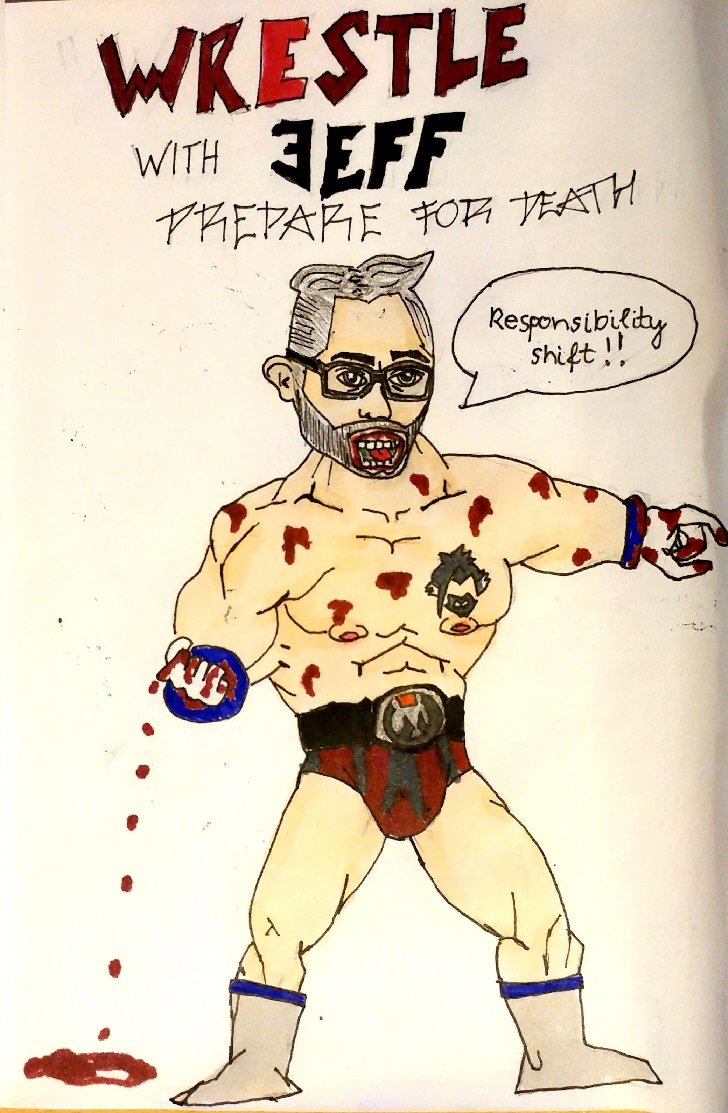 WRESTLE
WITH JEFF
PREPARE FOR DEATH
Responsibility
shift!!